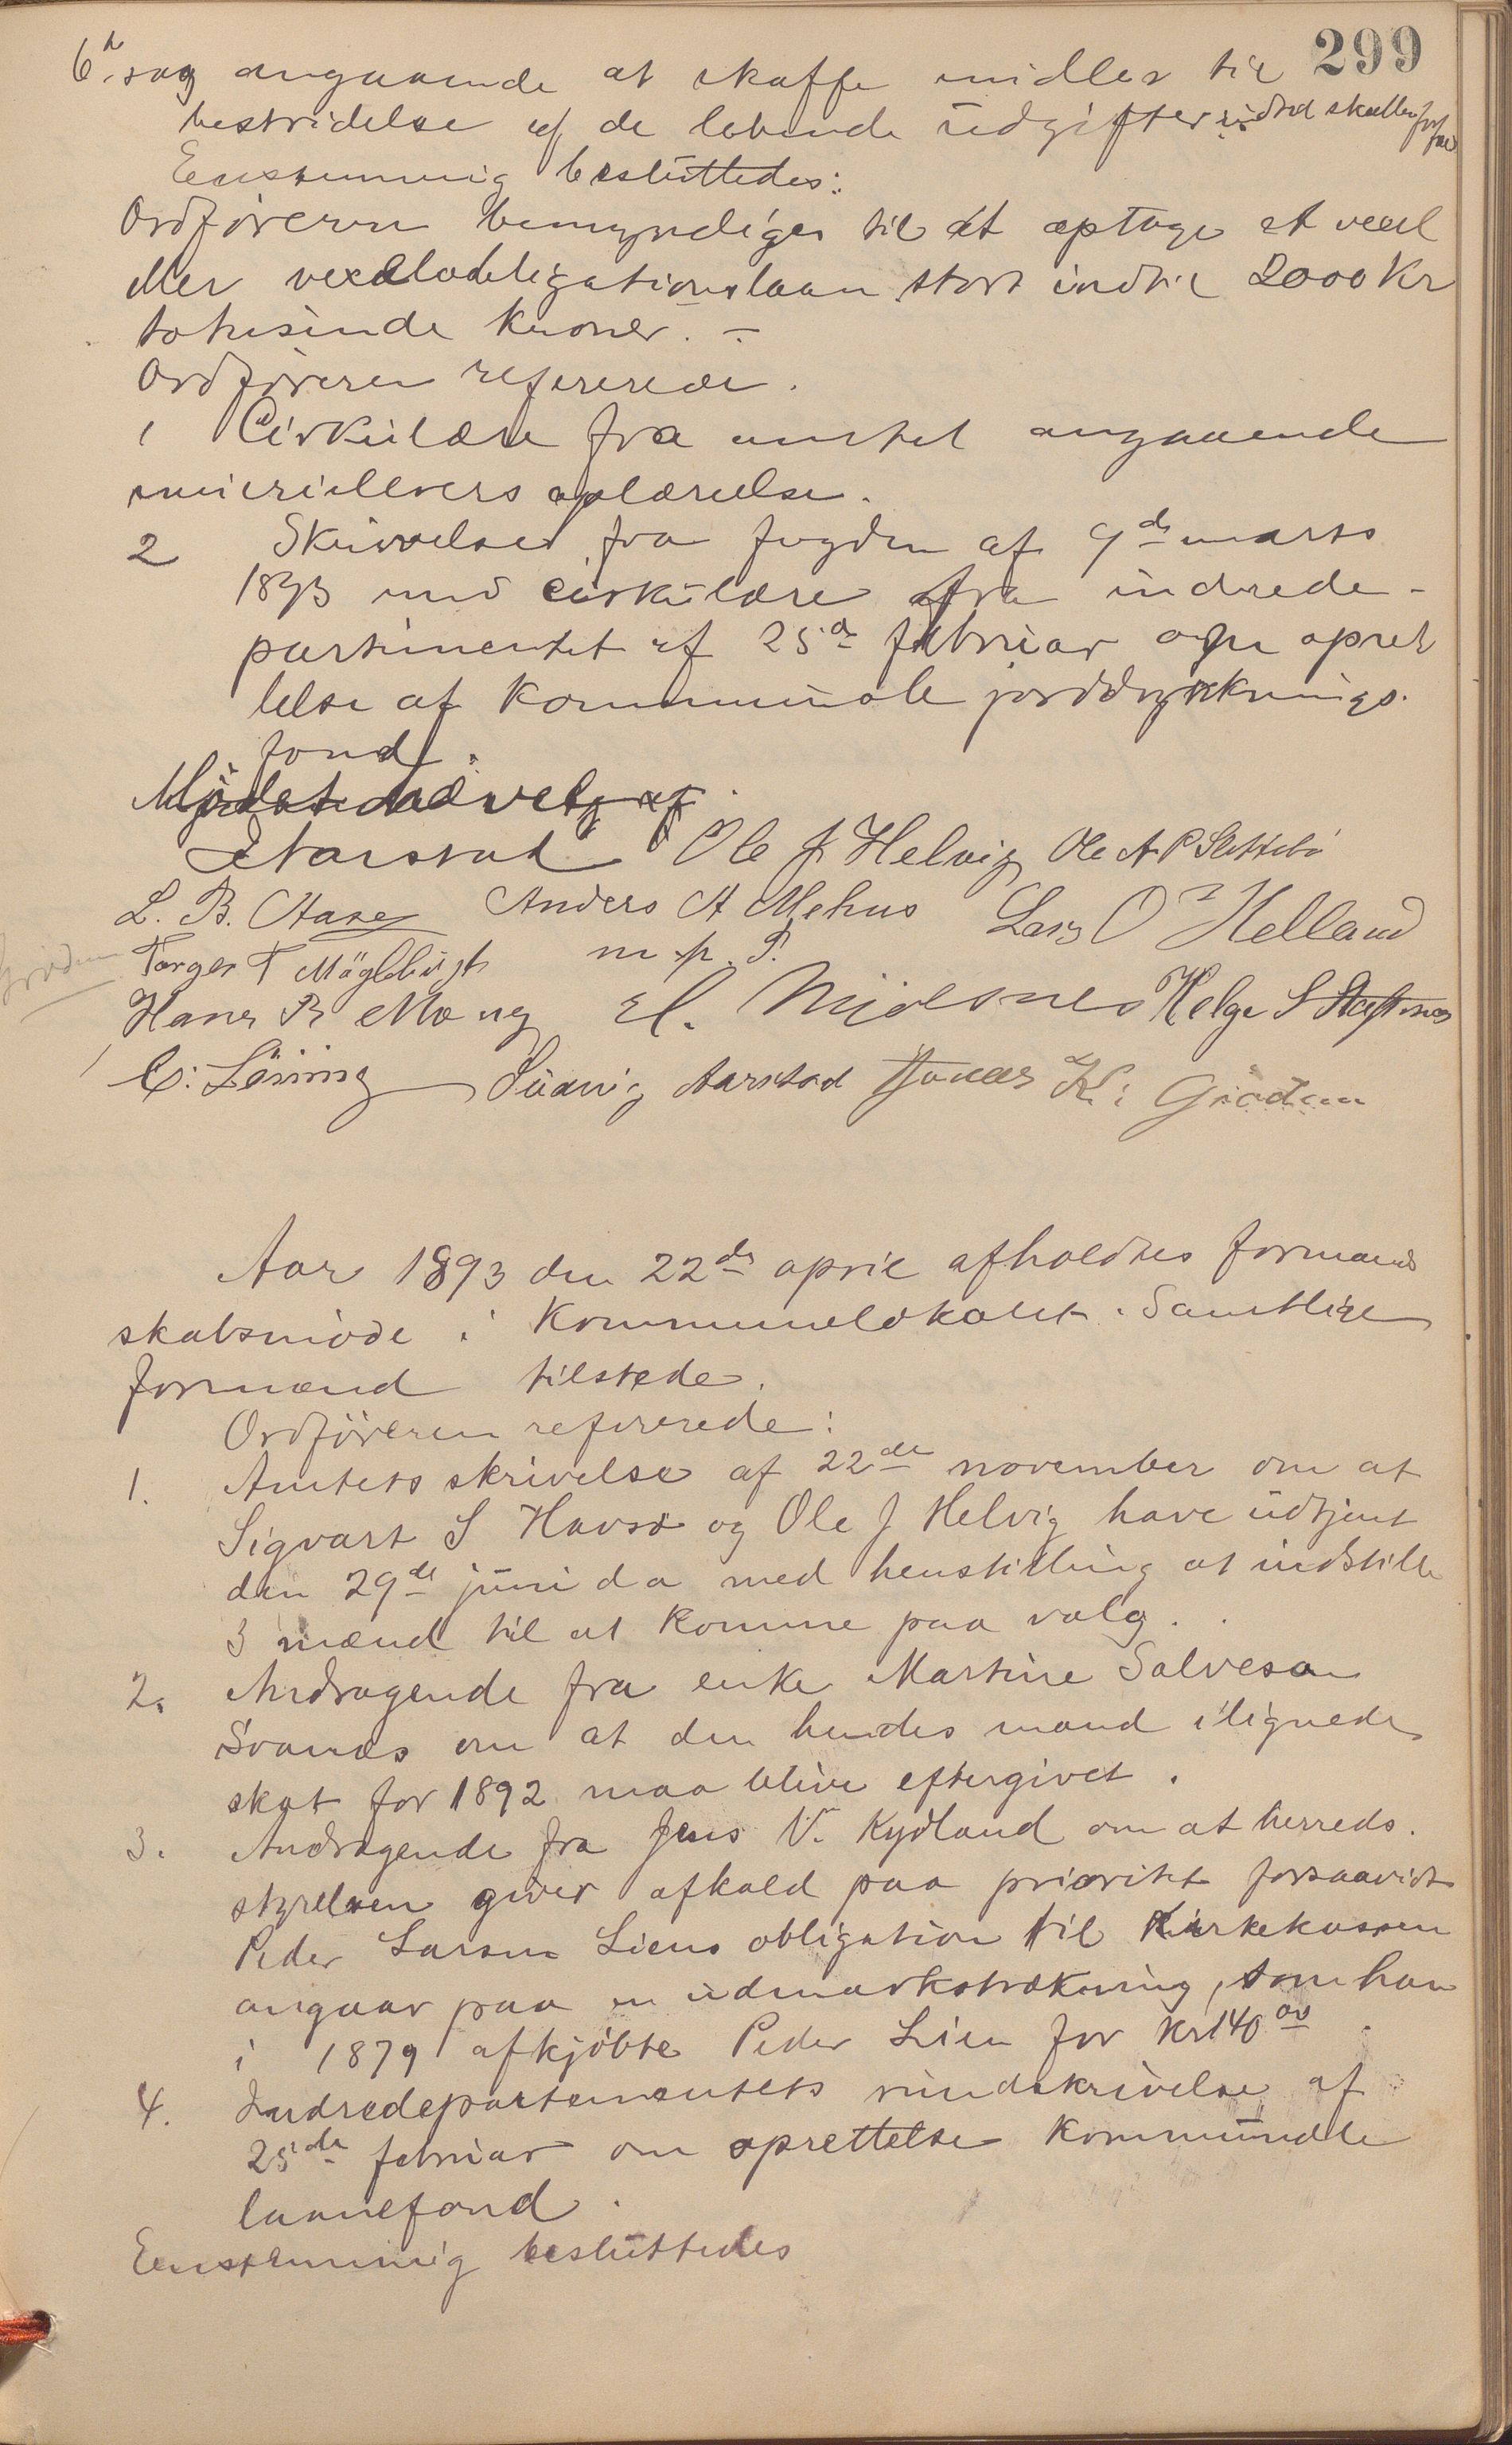 299
6te sag angaaende at skaffe midler til
bestridelse af de løbende udgifter indtil skatten forfalder
Enstemmig besluttedes:
Ordføreren bemyndiges til at optage et vexel
eller vexelobligationslaan stort indtil 2000 Kr
totusinde kroner. –
Ordføreren refererede.
1 Cirkulære fra amtet angaaende
meierielevers oplærelse.
2 Skrivelse fra fogden af 9de marts
1893 med cirkulære fra indrede-
partementet af 25de februar om opret
telse af kommunale jorddyrknings-
fond.
Mødet hævet
Aarstad Ole J Helvig Ole A P Slettebö
L. B. Aase Anders A Mehus Lars O Helland
Torger T Mögleböst m. p. P.
Grödem
Hans R Mong H. Mydsnes Helge S Stapnes
C: Löining Ludvig Aarstad Jonas K: Grödem
Aar 1893 den 22de april afholdtes formand
skabsmøde i Kommunelokalet. Samtlige
formænd tilstede.
Ordføreren refererede:
1. Amtets skrivelse af 22de november om at
Sigvart S Havsö og Ole J Helvig have udtjent
den 29de juni da med henstilling at indstille
3 mænd til at komme paa valg.
2. Andragende fra enke Martine Salvesen
Svanes om at den hendes mand ilignede
skat for 1892 maa blive eftergivet.
3. Andragende fra Jens V. Kydland om at herreds-
styrelsen giver afkald paa prioritet forsaavidt
Peder Larsen Liens obligation til Kirkekassen
angaar paa en udmarkstrækning, som han
i 1879 afkjöbte Peder Lien for Kr 140 00.
4. Indredepartementets rundskrivelse af
25de februar om oprettelse kommunale
laanefond.
Eenstemmig besluttedes